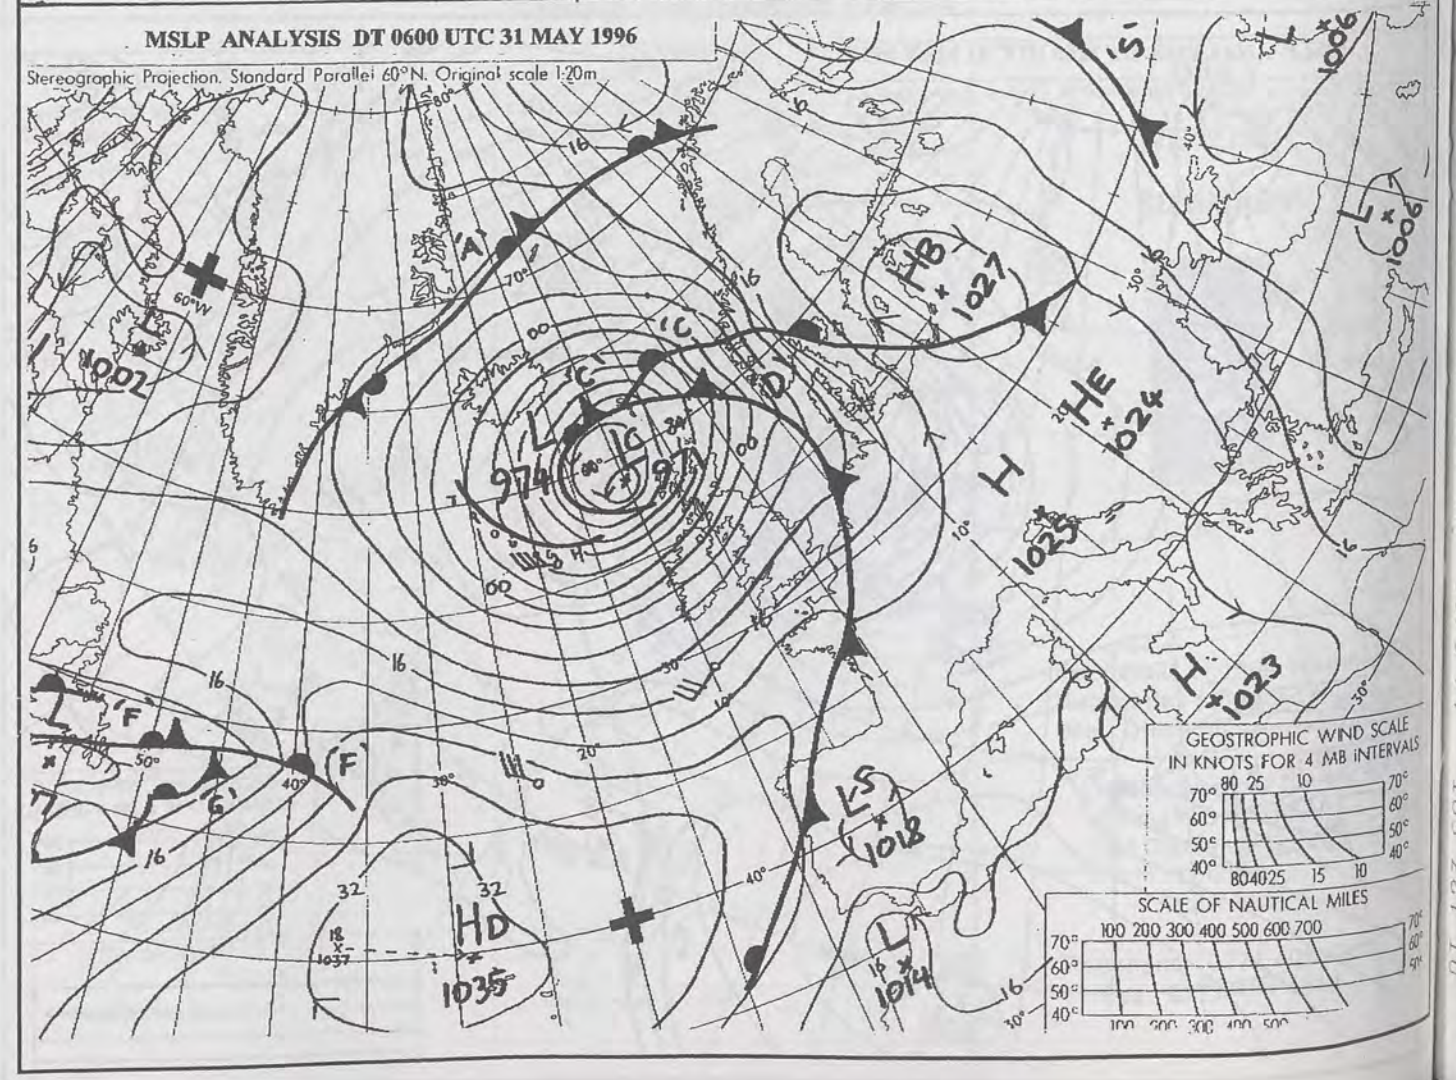 MSLP ANALYSIS DT 0600 UTC 31 MAY 1996
Stereographic Projection. Standard Parallel 60°N. Original scale 1:20m
80°
16
'S'
L
1006
40°
16
'A'
70°
HB
1027
16
L
1006
16
30°
60°W
L
1002
00
'C'
'C'
'D'
L
974
LC
971
84
00
20
HE
1024
H
1025
16
10°
00
H
16
16
16
30°
10°
H
1023
30°
L
'F'
50°
'F'
'G'
40°
30°
20°
16
LS
1018
40°
32
32
HD
1035
18
1037
L
16
1014
16
30°
GEOSTROPHIC WIND SCALE
IN KNOTS FOR 4 MB INTERVALS
80 25 10
70° 70°
60° 60°
50° 50°
40° 40°
80 40 25 15 10
SCALE OF NAUTICAL MILES
100 200 300 400 500 600 700
70° 70°
60° 60°
50° 50°
40°
100 200 300 400 500